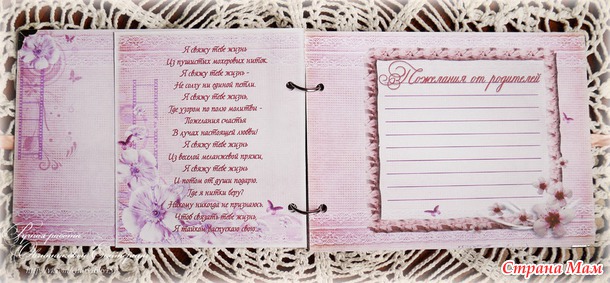 Я свяжу тебе жизнь
Из пушистых мохеровых ниток.
Я свяжу тебе жизнь -
Не солгу ни единой петли.
Я свяжу тебе жизнь,
Где узором по полю молитвы -
Пожелания счастья
В лучах настоящей любви!
Я свяжу тебе жизнь
Из веселой меланжевой пряжи,
Я свяжу тебе жизнь
И потом от души подарю.
Где я нитки беру?
Никому никогда не признаюсь.
Чтоб связать тебе жизнь,
Я тайком распускаю свою...
Пожелания от родителей
Ручная работа
Страна Мам